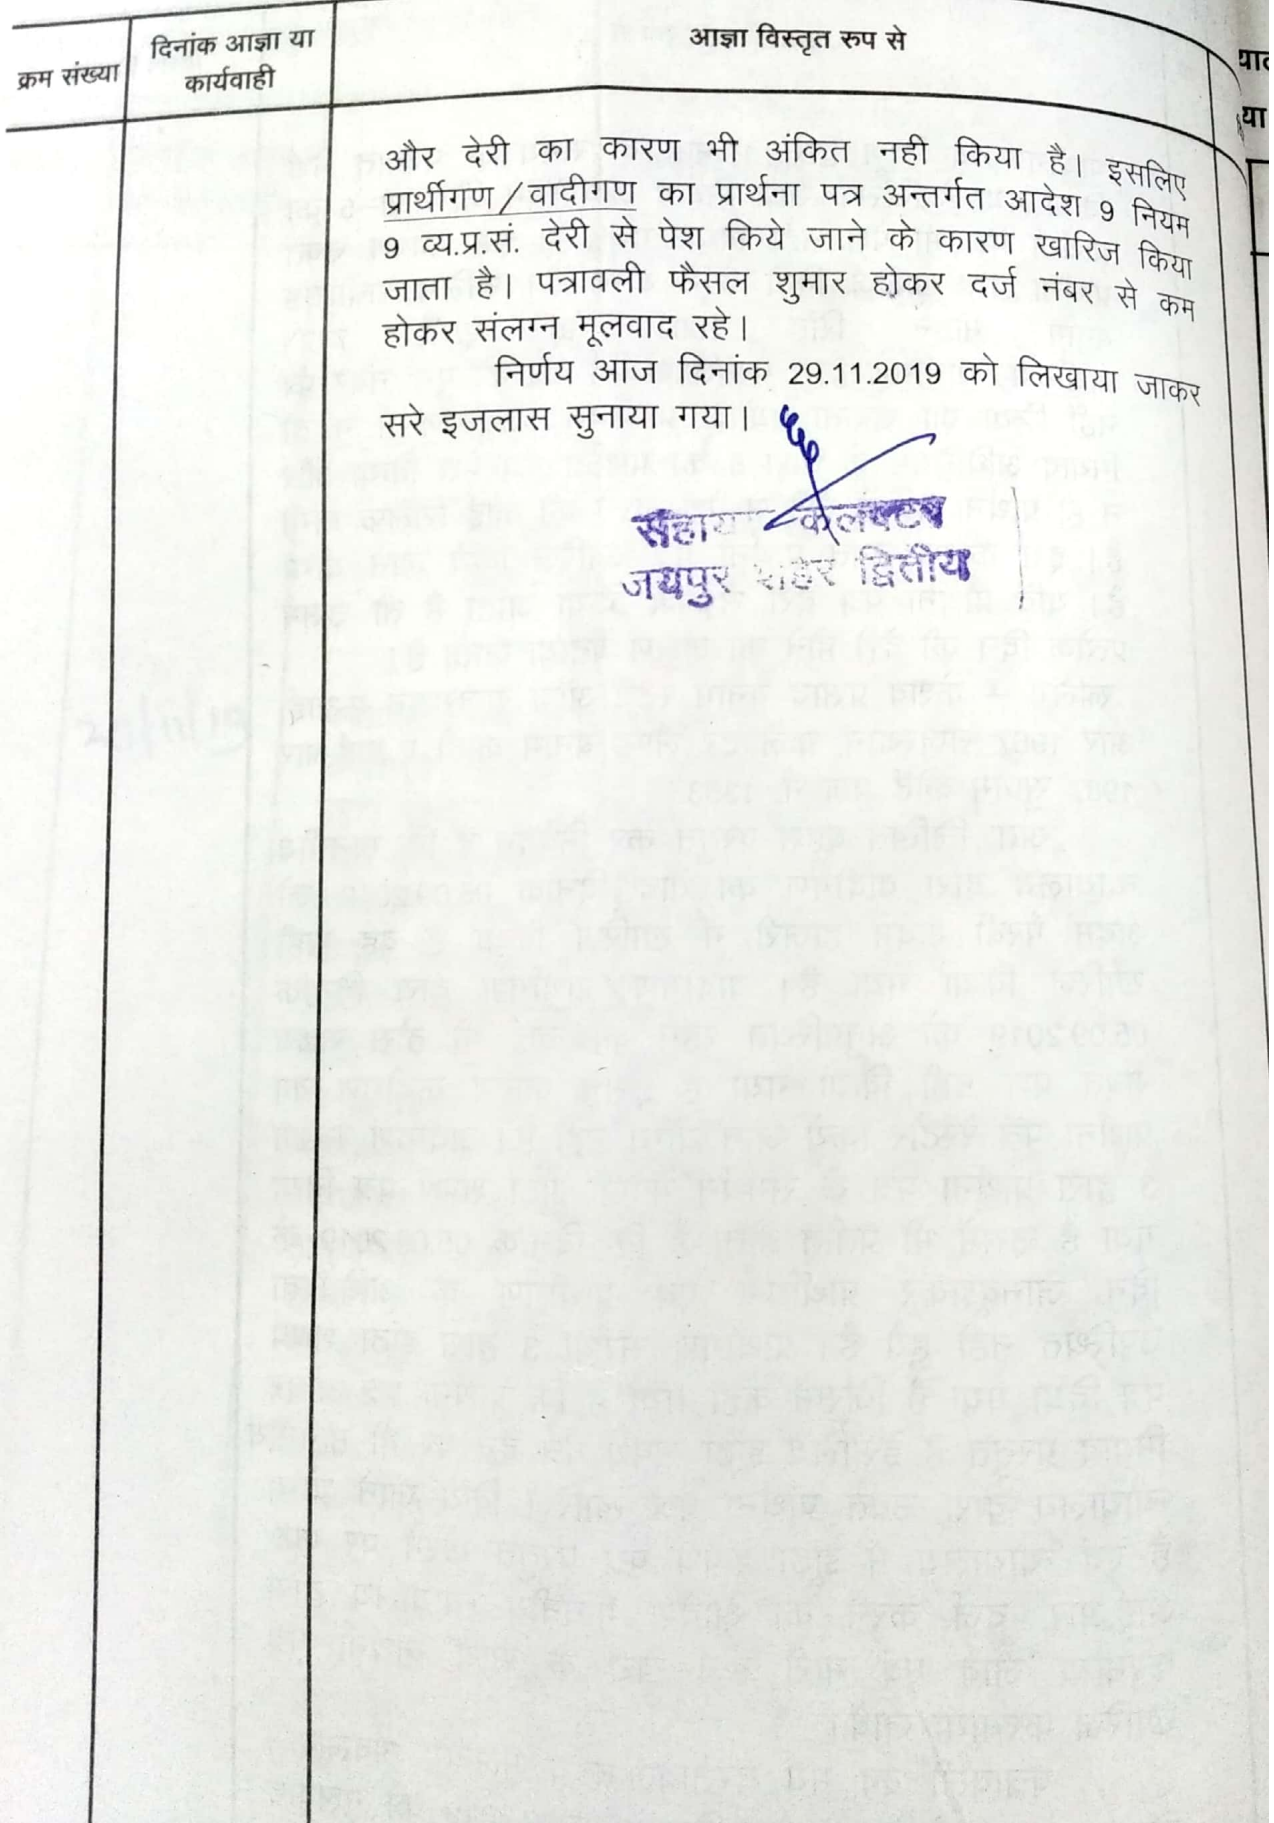 क्रम संख्या
दिनांक आज्ञा या
कार्यवाही
आज्ञा विस्तृत रुप से
और देरी का कारण भी अंकित नही किया है। इसलिए
प्रार्थीगण/वादीगण का प्रार्थना पत्र अन्तर्गत आदेश 9 नियम
9 व्य.प्र.सं. देरी से पेश किये जाने के कारण खारिज किया
जाता है। पत्रावली फैसल शुमार होकर दर्ज नंबर से कम
होकर संलग्न मूलवाद रहे।
निर्णय आज दिनांक 29.11.2019 को लिखाया जाकर
सरे इजलास सुनाया गया।
सहायक कलक्टर
जयपुर शहर द्वितीय